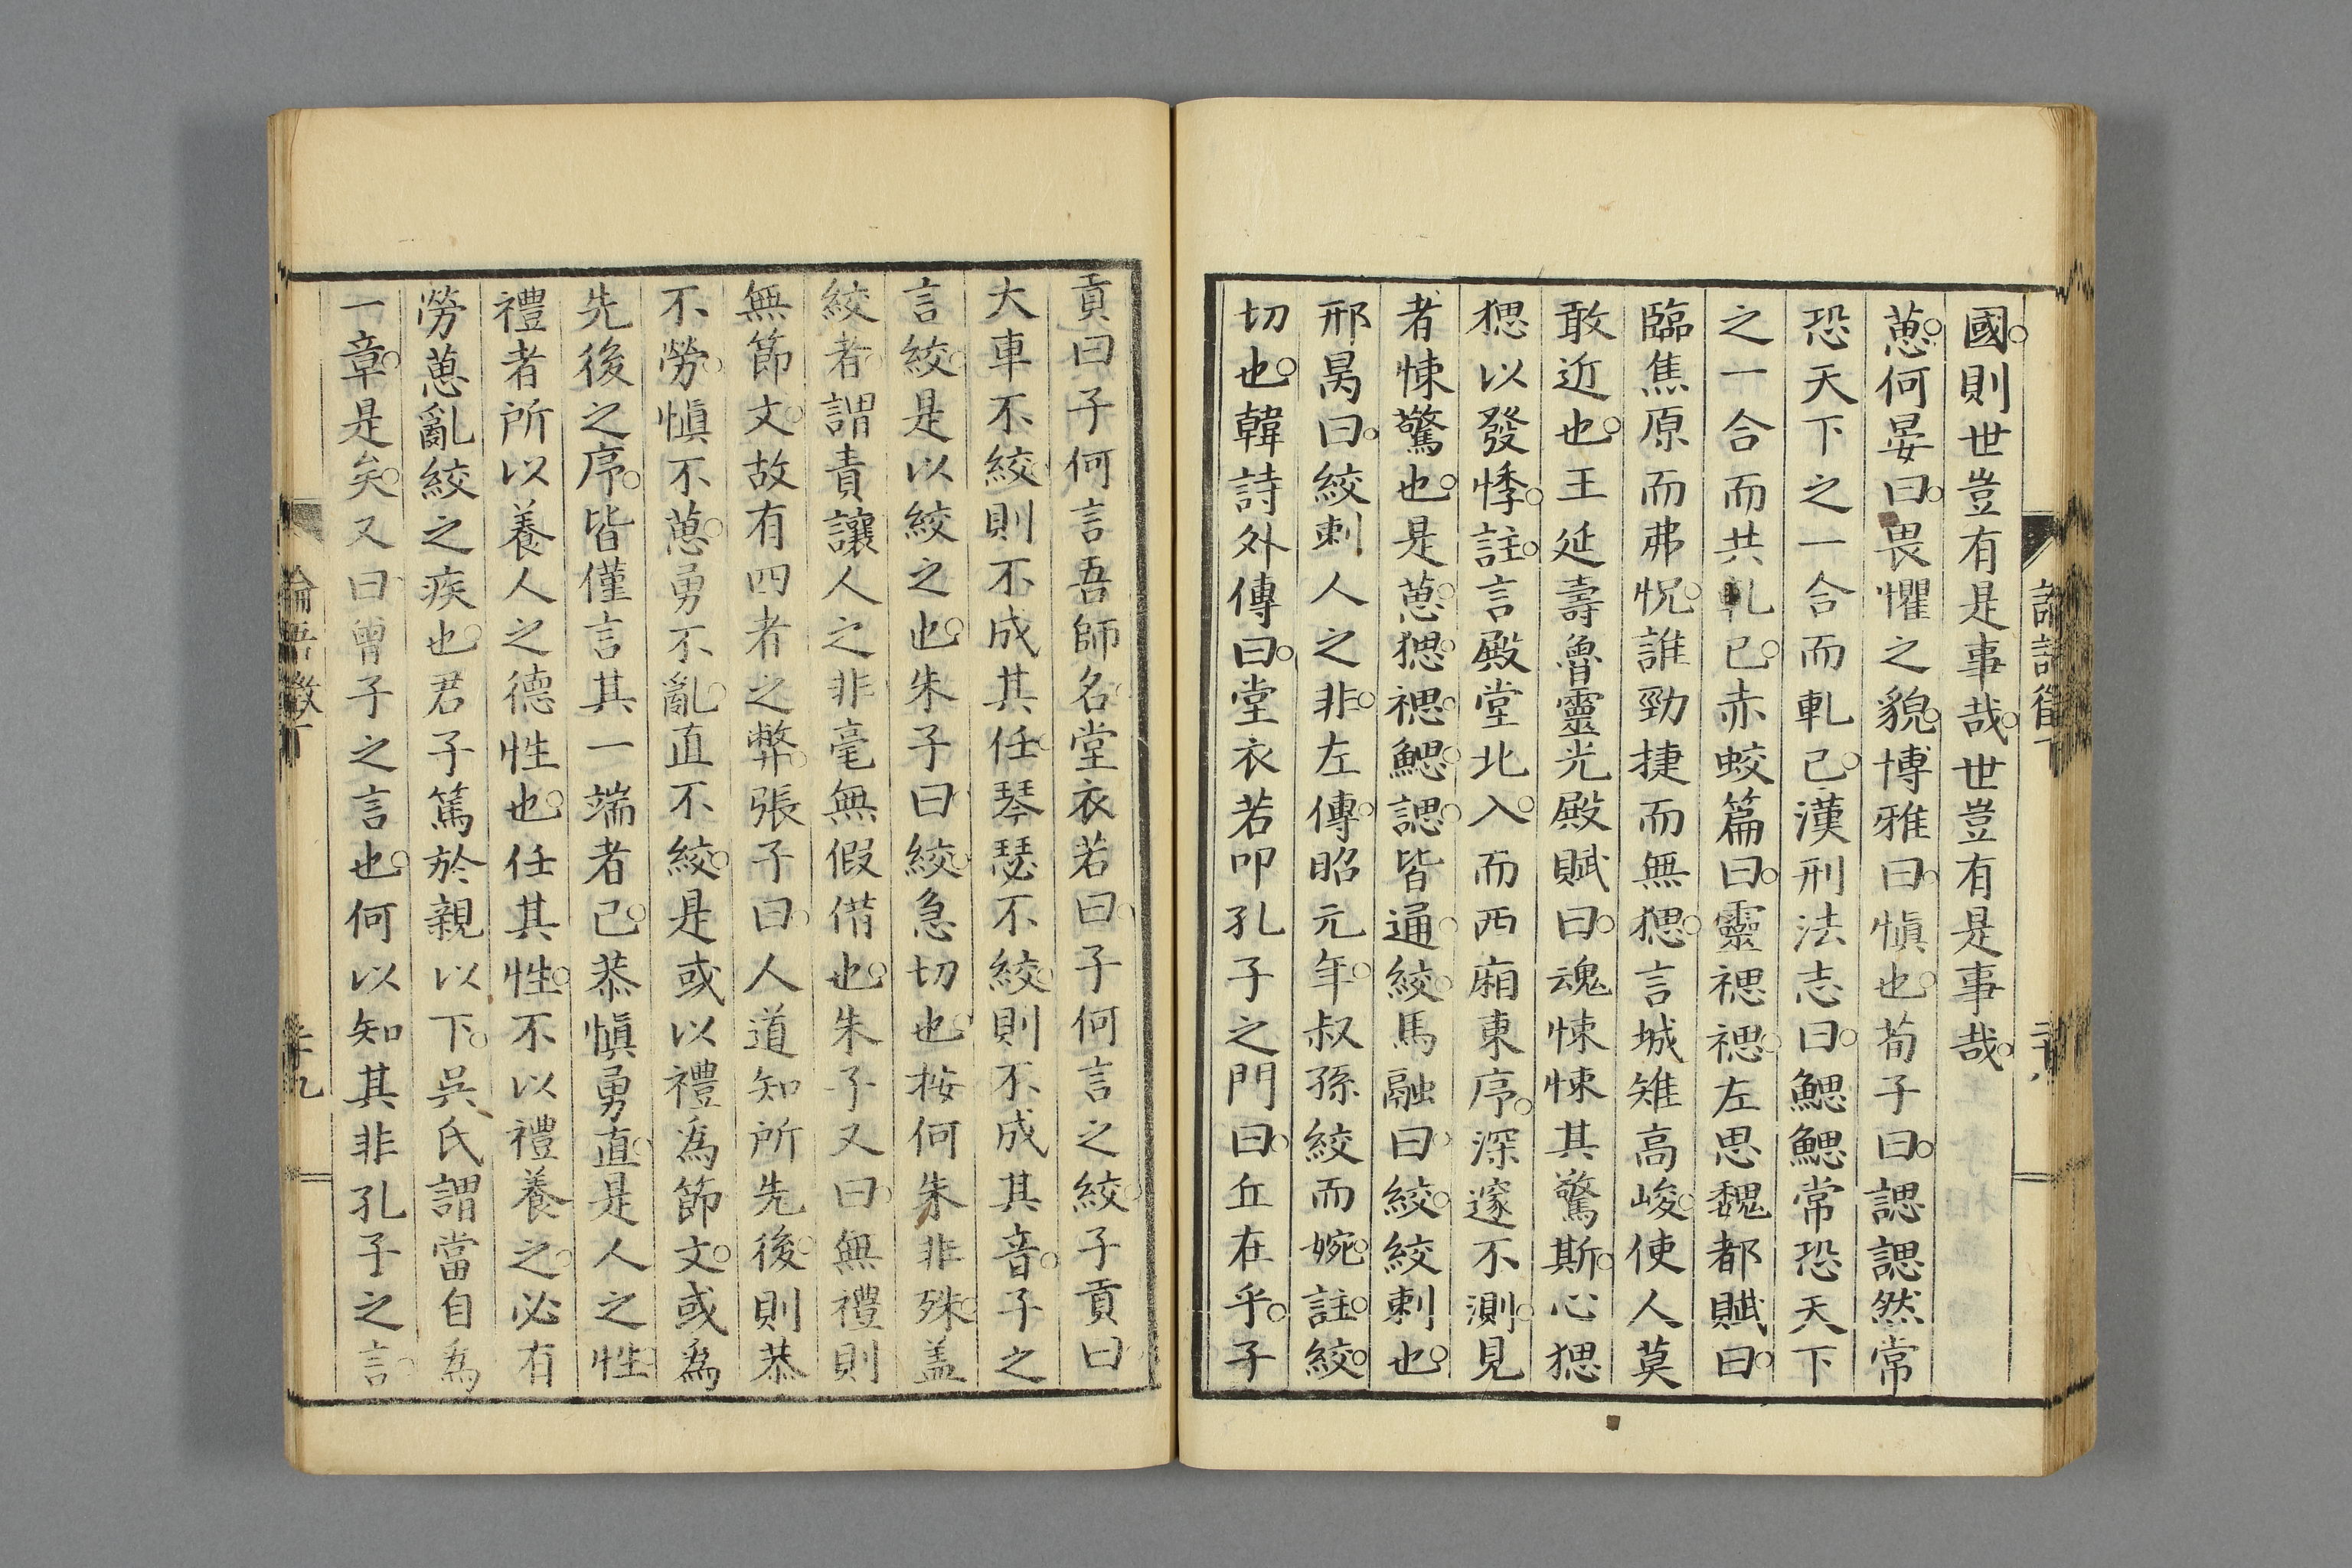 國則世豈有是事哉世豈有是事哉
葸何晏曰畏懼之貌博雅曰愼也荀子曰諰諰然常
恐天下之一合而軋己漢刑法志曰鰓鰓常恐天下
之一合而共軋己赤蛟篇曰靈禗禗左思魏都賦曰
臨焦原而弗怳誰勁捷而無猤言城雉高峻使人莫
敢近也王延壽魯靈光殿賦曰魂悚悚其驚斯心猤
猤以發悸註言殿堂北入而西廂東序深邃不測見
者悚驚也是葸猤禗鰓諰皆通絞馬融曰絞絞刺也
邢昺曰絞刺人之非左傳昭元年叔孫絞而婉註絞
切也韓詩外傳曰堂衣若叩孔子之門曰丘在乎子
貢曰子何言吾師名堂衣若曰子何言之絞子貢曰
大車不絞則不成其任琴瑟不絞則不成其音子之
言絞是以絞之也朱子曰絞急切也按何朱非殊盖
絞者謂責讓人之非毫無假借也朱子又曰無禮則
無節文故有四者之弊張子曰人道知所先後則恭
不勞愼不葸勇不亂直不絞是或以禮爲節文或爲
先後之序皆僅言其一端者已恭愼勇直是人之性
禮者所以養人之德性也任其性不以禮養之必有
勞葸亂絞之疾也君子篤於親以下吳氏謂當自爲
一章是矣又曰曾子之言也何以知其非孔子之言